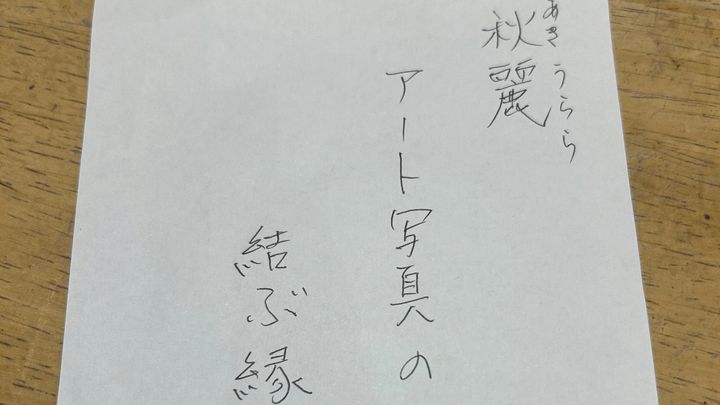 秋麗
あきうらら
アート写真の
結ぶ縁